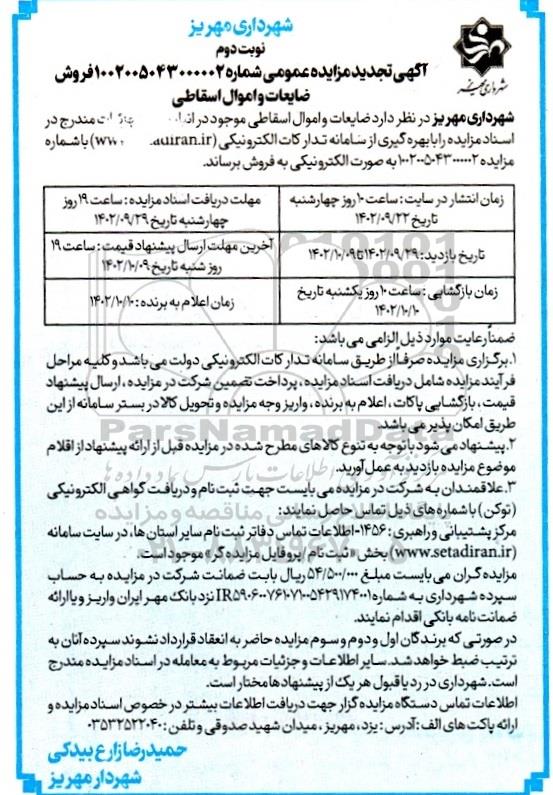 شهرداری مهریز
نوبت دوم
آگهی تجدید مزایده عمومی شماره ۱۰۰۲۰۰۵۰۴۳۰۰۰۰۰۲ فروش
ضایعات و اموال اسقاطی
شهرداری مهریز
شهرداری مهریز در نظر دارد ضایعات و اموال اسقاطی موجود در مندرج در
اسناد مزایده را با بهره گیری از سامانه تدارکات الکترونیکی (www adiran.ir) با شماره
مزایده ۱۰۰۲۰۰۵۰۴۳۰۰۰۰۰۲ به صورت الکترونیکی به فروش برساند.
زمان انتشار در سایت : ساعت ۱۰ روز چهارشنبه
تاریخ ۱۴۰۲/۰۹/۲۲
مهلت دریافت اسناد مزایده : ساعت ۱۹ روز
چهارشنبه تاریخ ۱۴۰۲/۰۹/۲۹
تاریخ بازدید : ۱۴۰۲/۰۹/۲۹ تا ۱۴۰۲/۱۰/۰۹
آخرین مهلت ارسال پیشنهاد قیمت : ساعت ۱۹
روز شنبه تاریخ ۱۴۰۲/۱۰/۰۹
زمان بازگشایی : ساعت ۱۰ روز یکشنبه تاریخ
۱۴۰۲/۱۰/۱۰
زمان اعلام به برنده : ۱۴۰۲/۱۰/۱۰
ضمناً رعایت موارد ذیل الزامی می باشد:
۱. برگزاری مزایده صرفاً از طریق سامانه تدارکات الکترونیکی دولت می باشد و کلیه مراحل
فرآیند مزایده شامل دریافت اسناد مزایده ، پرداخت تضمین شرکت در مزایده ، ارسال پیشنهاد
قیمت ، بازگشایی پاکات ، اعلام به برنده ، واریز وجه مزایده و تحویل کالا در بستر سامانه از این
طریق امکان پذیر می باشد.
ParsNamadData
۲. پیشنهاد می شود با توجه به تنوع کالاهای مطرح شده در مزایده قبل از ارائه پیشنهاد از اقلام
موضوع مزایده بازدید به عمل آورید.
۳. علاقمندان به شرکت در مزایده می بایست جهت ثبت نام و دریافت گواهی الکترونیکی
(توکن) با شماره های ذیل تماس حاصل نمایند:
مرکز پشتیبانی و راهبری : ۱۴۵۶-اطلاعات تماس دفاتر ثبت نام سایر استان ها، در سایت سامانه
(www.setadiran.ir) بخش «ثبت نام / پروفایل مزایده گر» موجود است.
مزایده گران می بایست مبلغ ۵۴/۵۰۰/۰۰۰ ریال بابت ضمانت شرکت در مزایده به حساب
سپرده شهرداری به شماره IR۵۹۰۶۰۰۷۶۱۰۷۱۰۰۵۴۲۹۱۷۴۰۰۱ نزد بانک مهر ایران واریز و یا ارائه
ضمانت نامه بانکی اقدام نمایند.
در صورتی که برندگان اول و دوم و سوم مزایده حاضر به انعقاد قرارداد نشوند سپرده آنان به
ترتیب ضبط خواهد شد. سایر اطلاعات و جزئیات مربوط به معامله در اسناد مزایده مندرج
است. شهرداری در رد یا قبول هر یک از پیشنهادها مختار است.
اطلاعات تماس دستگاه مزایده گزار جهت دریافت اطلاعات بیشتر در خصوص اسناد مزایده و
ارائه پاکت های الف : آدرس : یزد، مهریز ، میدان شهید صدوقی و تلفن : ۰۳۵۳۲۵۲۲۰۴۰
حمیدرضا زارع بیدکی
شهردار مهریز